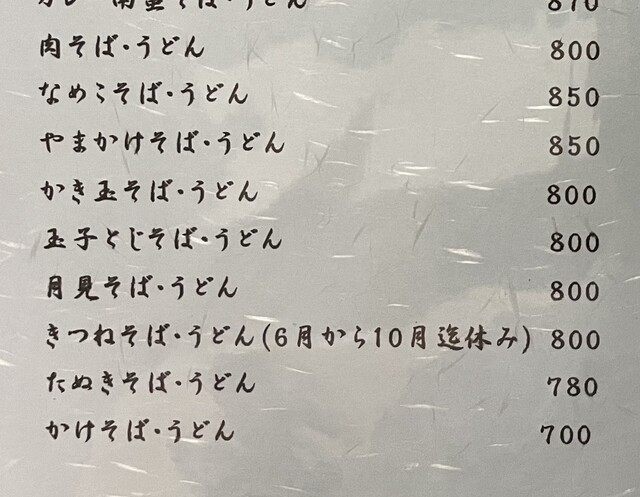 カレー南蛮そば・うどん 870
肉そば・うどん 800
なめこそば・うどん 850
やまかけそば・うどん 850
かき玉そば・うどん 800
玉子とじそば・うどん 800
月見そば・うどん 800
きつねそば・うどん(6月から10月迄休み) 800
たぬきそば・うどん 780
かけそば・うどん 700